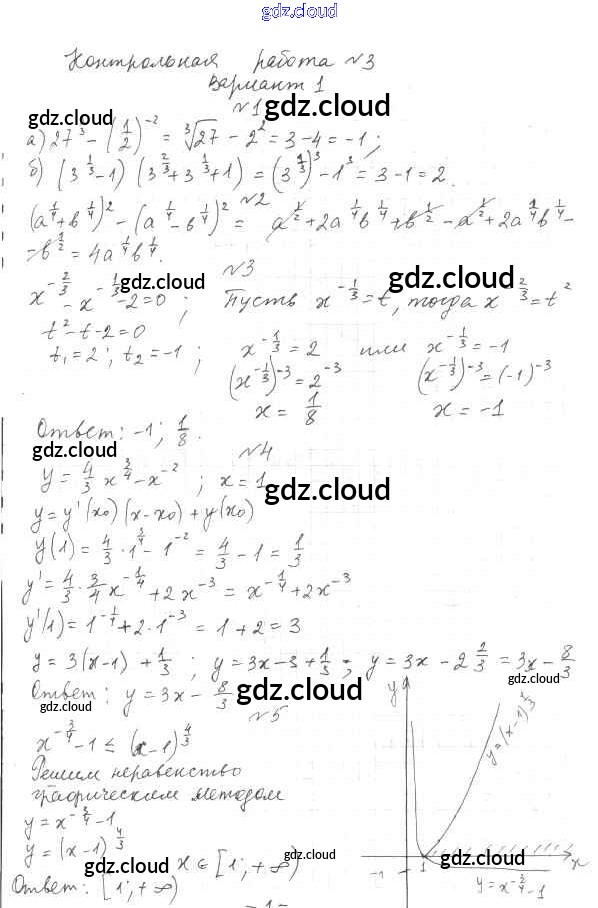 gdz.cloud
Контрольная работа №3
Вариант 1
№1
gdz.cloud
gdz.cloud
а) 27^3 - (1/2)^-2 = ∛27 - 2^2 = 3 - 4 = -1;
б) (3^1/3 - 1)(3^2/3 + 3^1/3 + 1) = (3^1/3)^3 - 1^3 = 3 - 1 = 2.
№2
(a^1/4 + b^1/4)^2 - (a^1/4 - b^1/4)^2 = a^1/2 + 2a^1/4 b^1/4 + b^1/2 - a^1/2 + 2a^1/4 b^1/4 -
- b^1/2 = 4a^1/4 b^1/4.
№3
gdz.cloud
gdz.cloud
x^-2/3 - x^-1/3 - 2 = 0; Пусть x^-1/3 = t, тогда x^-2/3 = t^2
t^2 - t - 2 = 0
t1 = 2; t2 = -1; x^-1/3 = 2 или x^-1/3 = -1
(x^-1/3)^-3 = 2^-3 (x^-1/3)^-3 = (-1)^-3
x = 1/8 x = -1
Ответ: -1; 1/8.
gdz.cloud
№4
y = 4/3 x^3/4 - x^-2; x = 1
gdz.cloud
y = y'(x0)(x - x0) + y(x0)
y(1) = 4/3 · 1^3/4 - 1^-2 = 4/3 - 1 = 1/3
gdz.cloud
y' = 4/3 · 3/4 x^-1/4 + 2x^-3 = x^-1/4 + 2x^-3
y'(1) = 1^-1/4 + 2·1^-3 = 1 + 2 = 3
y = 3(x-1) + 1/3; y = 3x - 3 + 1/3; y = 3x - 2 2/3 = 3x - 8/3
gdz.cloud
Ответ: y = 3x - 8/3
gdz.cloud
gdz.cloud
№5
x^-3/4 - 1 ≤ (x-1)^4/3
Решим неравенство
графическим методом
y = x^-3/4 - 1
y = (x-1)^4/3
gdz.cloud
x ∈ [1; +∞)
gdz.cloud
Ответ: [1; +∞)
y
y = (x-1)^4/3
-1
1
gdz.cloud
x
y = x^-3/4 - 1